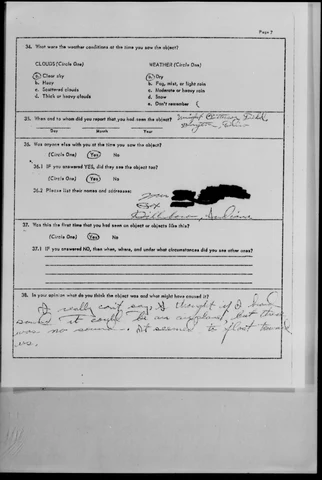 Page 7
34. What were the weather conditions at the time you saw the object?
CLOUDS (Circle One) WEATHER (Circle One)
a. Clear sky a. Dry
b. Hazy b. Fog, mist, or light rain
c. Scattered clouds c. Moderate or heavy rain
d. Thick or heavy clouds d. Snow
e. Don't remember
35. When and to whom did you report that you had seen the object?
Dayton, Ohio
Day Month Year
36. Was anyone else with you at the time you saw the object?
(Circle One) Yes No
36.1 IF you answered YES, did they see the object too?
(Circle One) Yes No
36.2 Please list their names and addresses:
Indiana
37. Was this the first time that you had seen an object or objects like this?
(Circle One) Yes No
37.1 IF you answered NO, then when, where, and under what circumstances did you see other ones?
38. In your opinion what do you think the object was and what might have caused it?
I really can't say. I thought if I had
sound it could be an airplane, but there
was no sound. It seemed to float toward
us.